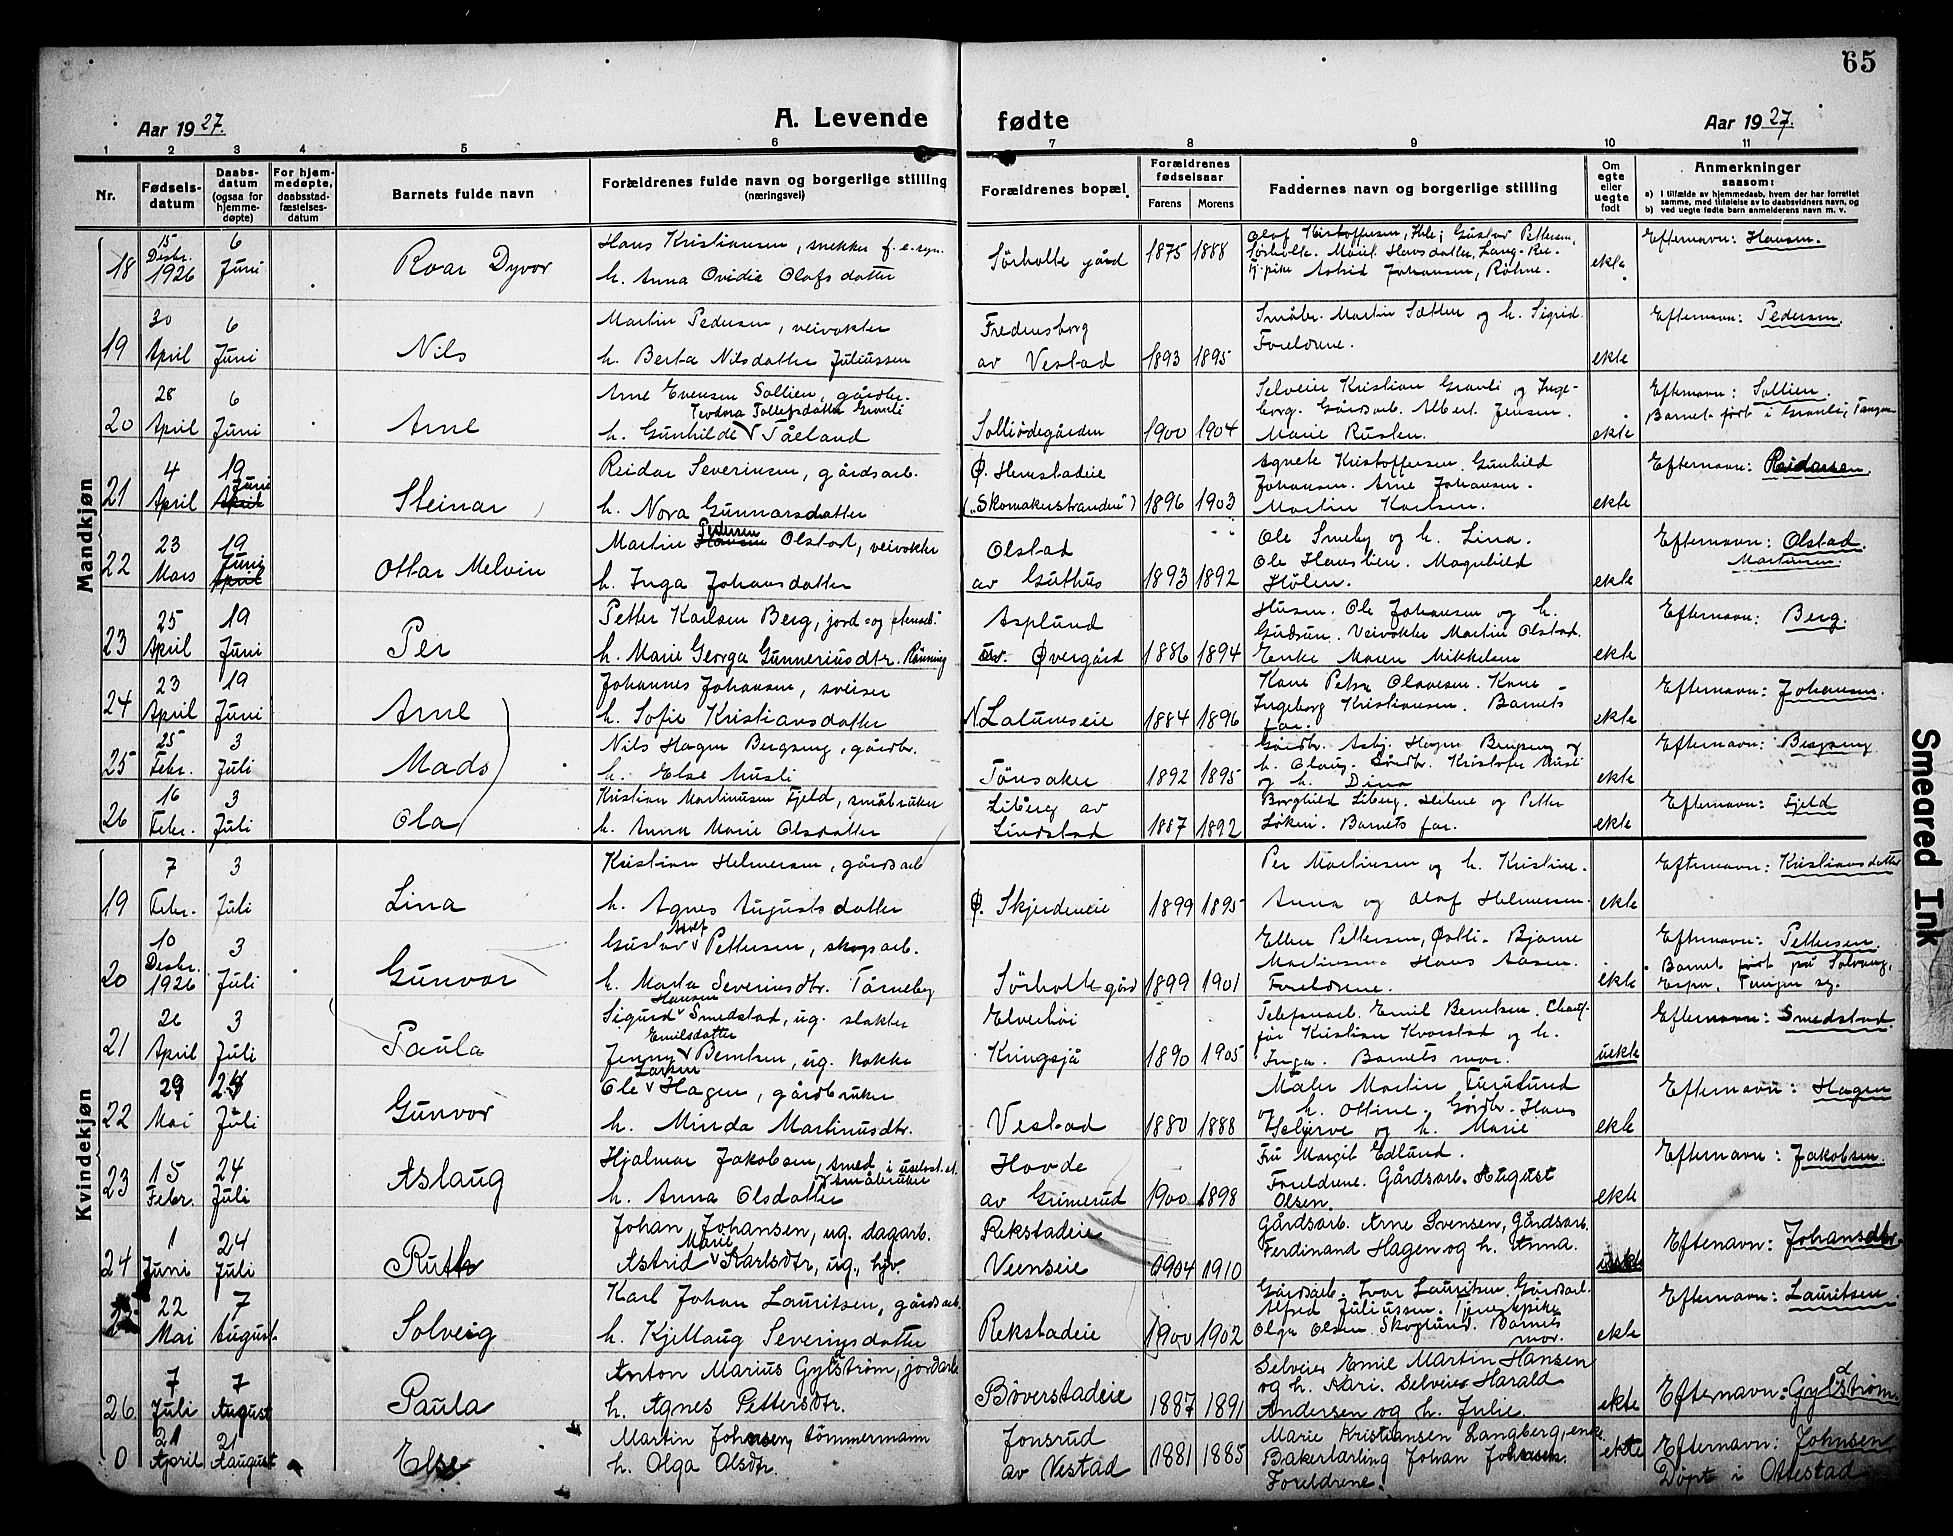 65
Aar 1927.
A. Levende fødte
Aar 1927.
1 2 3 4 5 6 7 8 9 10 11
Nr.
Fødsels-
datum
Daabs-
datum
(ogsaa for
hjemme-
døpte)
For hjem-
medøpte,
daabsstad-
fæstelses-
datum
Barnets fulde navn
Forældrenes fulde navn og borgerlige stilling
(næringsvei)
Forældrenes bopæl
Forældrenes
fødselsaar
Farens Morens
Faddernes navn og borgerlige stilling
Om
egte
eller
uegte
født
Anmerkninger
saasom:
a) I tilfælde av hjemmedaab, hvem der har forrettet
samme, med tilføielse av to daabsvidners navn, og
b) ved uegte fødte barn anmelderens navn m. v.
Mandkjøn
18 15 Desbr. 1926 6 Juni Roar Dyvor
Hans Kristiansen, snekker
h. Anna Ovidie Olafsdatter
Sørholte gård 1875 1888
Olaf Kristoffersen, Gustav Pettersen,
Sørholte. Marit Hansdatter,
Astrid Johansen,
ekte Efternavn: Hansen.
19 30 April 6 Juni Nils
Martin Pedersen, veivokter
h. Berta Nilsdatter Juliussen
Fredensborg
av Vestad 1893 1895
Småbr. Martin Sætten og h. Sigrid.
Foreldrene.
ekte Efternavn: Pedersen.
20 28 April 6 Juni Arne
Arne Evensen Sollien, gårdbr.
Teodora Tollefsdatter Gravli
h. Gunhilde v Tåeland
Solliødegården 1900 1904
Selveier Kristian Gravli og Inge-
borg. Gårdsarb. Albert Jensen.
Marie Rusten.
ekte Efternavn: Sollien.
Barnet født i Gravli, Tangen
21 4 April 19 Juni April Steinar
Reidar Severinsen, gårdsarb.
h. Nora Gunnarsdatter
Ø. Hemstadeie
("Skomakerstranden") 1896 1903
Agnete Kristoffersen. Gunhild
Johansen. Arne Johansen.
Martin Karlsen.
ekte Efternavn: Reidarsen.
22 23 Mars 19 Juni April Ottar Melvin
Pedersen
Martin Hansen Olstad, veivokter
h. Inga Johansdatter
Olstad
av Guthus 1893 1892
Ole Smeby og h. Lina.
Ole Hanslien. Magnhild
Holen.
ekte Efternavn: Olstad.
Martinsen.
23 25 April 19 Juni Per
Petter Karlsen Berg, jord- og stenarb.
h. Marie Georga Gunneriusdtr. Rønning
Asplund
av. Øvergård 1886 1894
Husm. Ole Johansen og h.
Gudrun. Veivokter Martin Olstad.
Enke Maren Mikkelsen
ekte Efternavn: Berg.
24 23 April 19 Juni Arne
Johannes Johansen, sveiser
h. Sofie Kristiansdatter
N. Lalumseie 1884 1896
Kone Petra Olavesen. Kone
Ingeborg Kristiansen. Barnets
far.
ekte Efternavn: Johansen.
25 25 Febr. 3 Juli Mads
Nils Hagen Bergseng, gårdbr.
h. Else Musli
Tønsaker 1892 1895
Gårdbr. Asbj. Hagen Bergseng og
h. Olaug. Gårdbr. Kristofer Musli
og h. Dina
ekte Efternavn: Bergseng.
26 16 Febr. 3 Juli Ola
Kristian Martinusen Fjeld, småbruker
h. Anna Marie Olsdatter
Liberg av
Lindstad 1887 1892
Borghild Liberg. Helene og Petter
Løken. Barnets far.
ekte Efternavn: Fjeld
Kvindekjøn
19 7 Febr. 3 Juli Lina
Kristian Helmersen, gårdsarb
h. Agnes Augustsdatter
Ø. Skjerdeneie 1899 1895
Per Martinsen og h. Kristine.
Anna og Olaf Helmersen.
ekte Efternavn: Kristiansdatter
20 10 Desbr. 1926 3 Juli Gunvor
Adolf
Gustav v Pettersen, skogsarb.
h. Marta Severinsdtr. Torneberg
Sørholte gård 1899 1901
Ellen Pettersen, Østli. Bjarne
Martinsen. Hans Aasen.
Foreldrene.
ekte Efternavn: Pettersen.
Barnet født på Solvang,
Espa, Tangen sg.
21 26 April 3 Juli Paula
Hansen
Sigurd v Smedstad, ug. slakter
Emilsdatter
Jenny v Berntsen, ug. kokke
Elverhøi
Kringsjå 1890 1905
Telefonarb. Emil Berntsen. Chauf-
før Kristian Kvorstad og h.
Inga. Barnets mor.
uekte Efternavn: Smedstad.
22 29 Mai 24 Juli Gunvor
Larsen
Ole v Hagen, gårdbruker
h. Minda Martinusdtr.
Vestad 1880 1888
Maler Martin Furulund
og h. Ottine. Gårdbr. Hans
Hellerve og h. Marie
ekte Efternavn: Hagen
23 15 Febr. 24 Juli Aslaug
Hjalmar Jakobsen, smed i uselvst. st.
småbruker
h. Anna Olsdatter
Hovde
av Grimerud 1900 1898
Fru Margit Edlund.
Foreldrene. Gårdsarb. August
Olsen.
ekte Efternavn: Jakobsen.
24 1 Juni 24 Juli Ruth
Johan Johansen, ug. dagarb.
Marie
Astrid v Karlsdtr, ug., hjv.
Rekstadeie
Veenseie 1904 1910
Gårdsarb. Arne Svensen, Gårdsarb.
Ferdinand Hagen og h. Anna.
uekte Eftenavn: Johansdtr.
25 22 Mai 7 August Solveig
Karl Johan Lauritsen, gårdsarb.
h. Kjellaug Severinsdatter
Rekstadeie 1900 1902
Gårdsarb. Ivar Lauritsen. Gårdsarb.
Alfred Juliussen. Tjenestepike
Olga Olsen Skoglund. Barnets
mor.
ekte Efternavn: Lauritsen.
26 7 Juli 7 August Paula
Anton Marius Gyldstrøm, jordarb.
h. Agnes Pettersdtr.
Bøverstadeie 1887 1891
Selveier Emil Martin Hansen
og h. Kari. Selveier Harald
Andersen og h. Julie.
ekte Efternavn: Gyldstrøm.
0 21 April 21 Aaugust Else
Martin Johnsen, tømmermann
h. Olga Olsdtr.
Jonsrud
av Vestad 1881 1885
Marie Kristiansen Langberg, enke.
Bakerlærling Johan Johnsen.
Foreldrene.
ekte Efternavn: Johnsen
Døpt i Ottestad
Smeared Ink